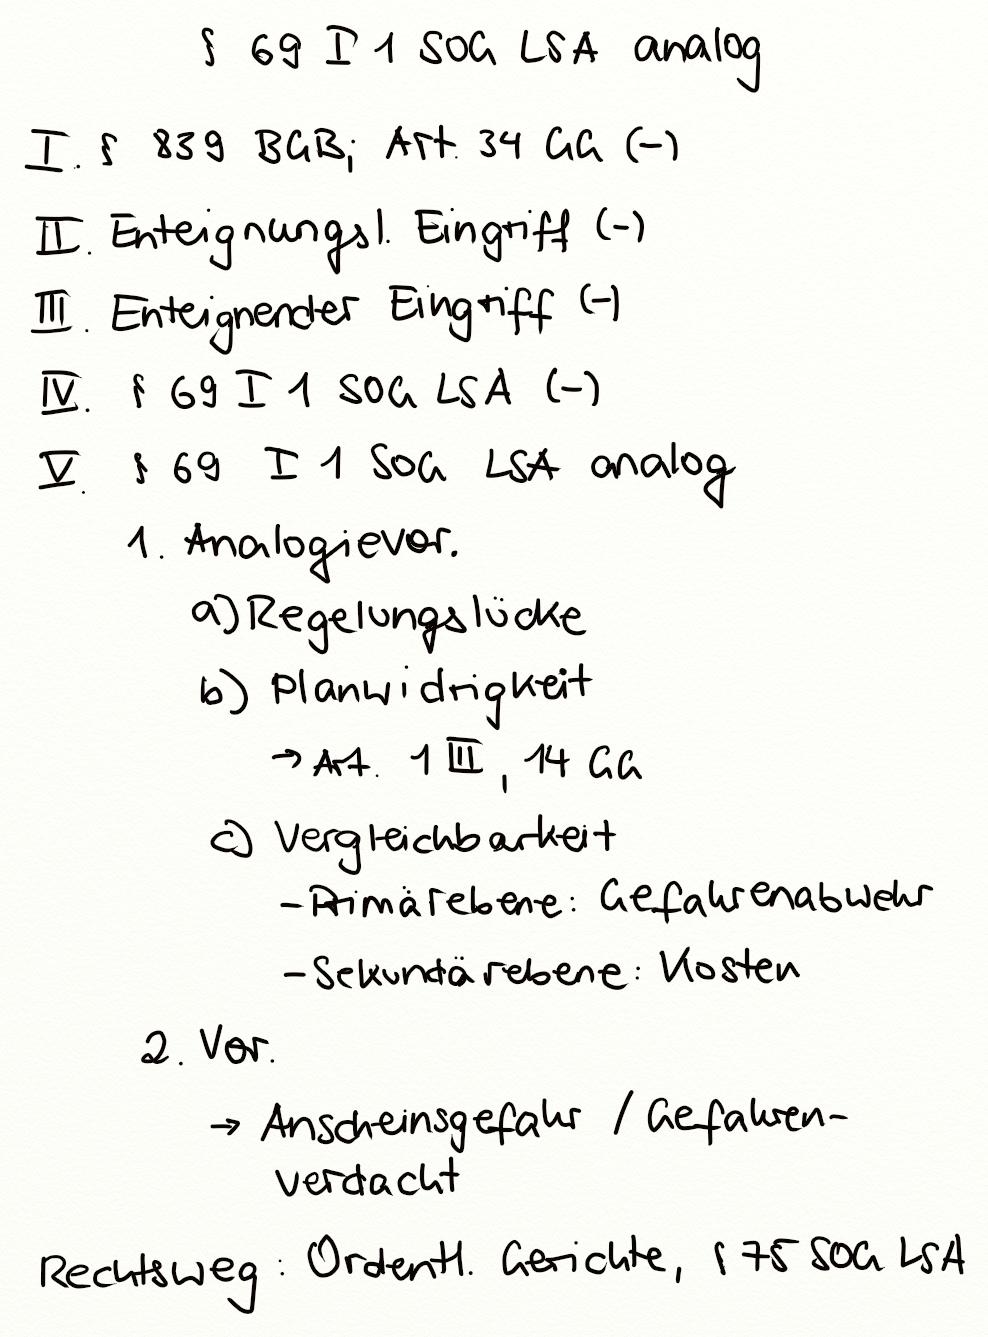 § 69 I 1 SOG LSA analog
I. § 839 BGB; Art. 34 GG (-)
II. Enteignungsl. Eingriff (-)
III. Enteignender Eingriff (-)
IV. § 69 I 1 SOG LSA (-)
V. § 69 I 1 SOG LSA analog
1. Analogievor.
a) Regelungslücke
b) Planwidrigkeit
→ Art. 1 III, 14 GG
c) Vergleichbarkeit
- Primärebene: Gefahrenabwehr
- Sekundärebene: Kosten
2. Vor.
→ Anscheinsgefahr / Gefahren-
verdacht
Rechtsweg: Ordentl. Gerichte, § 75 SOG LSA